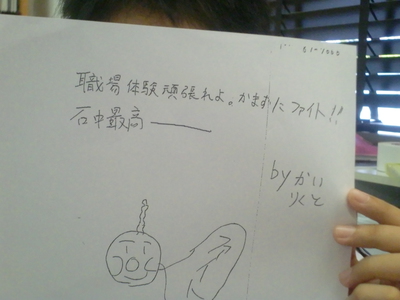 職場体験頑張れよ。かますにファイト!!
石中最高――
byかい
りくと